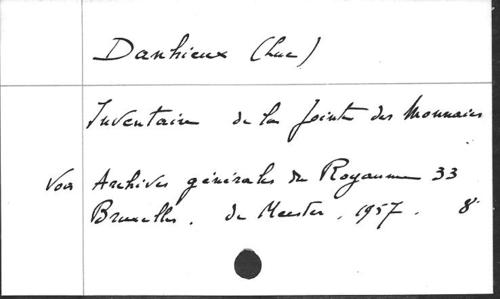 Danhieux (Luc)
Inventaire de la Jointe des Monnaies
Voir Archives générales du Royaume 33
Bruxelles. de Meester. 1957. 8°